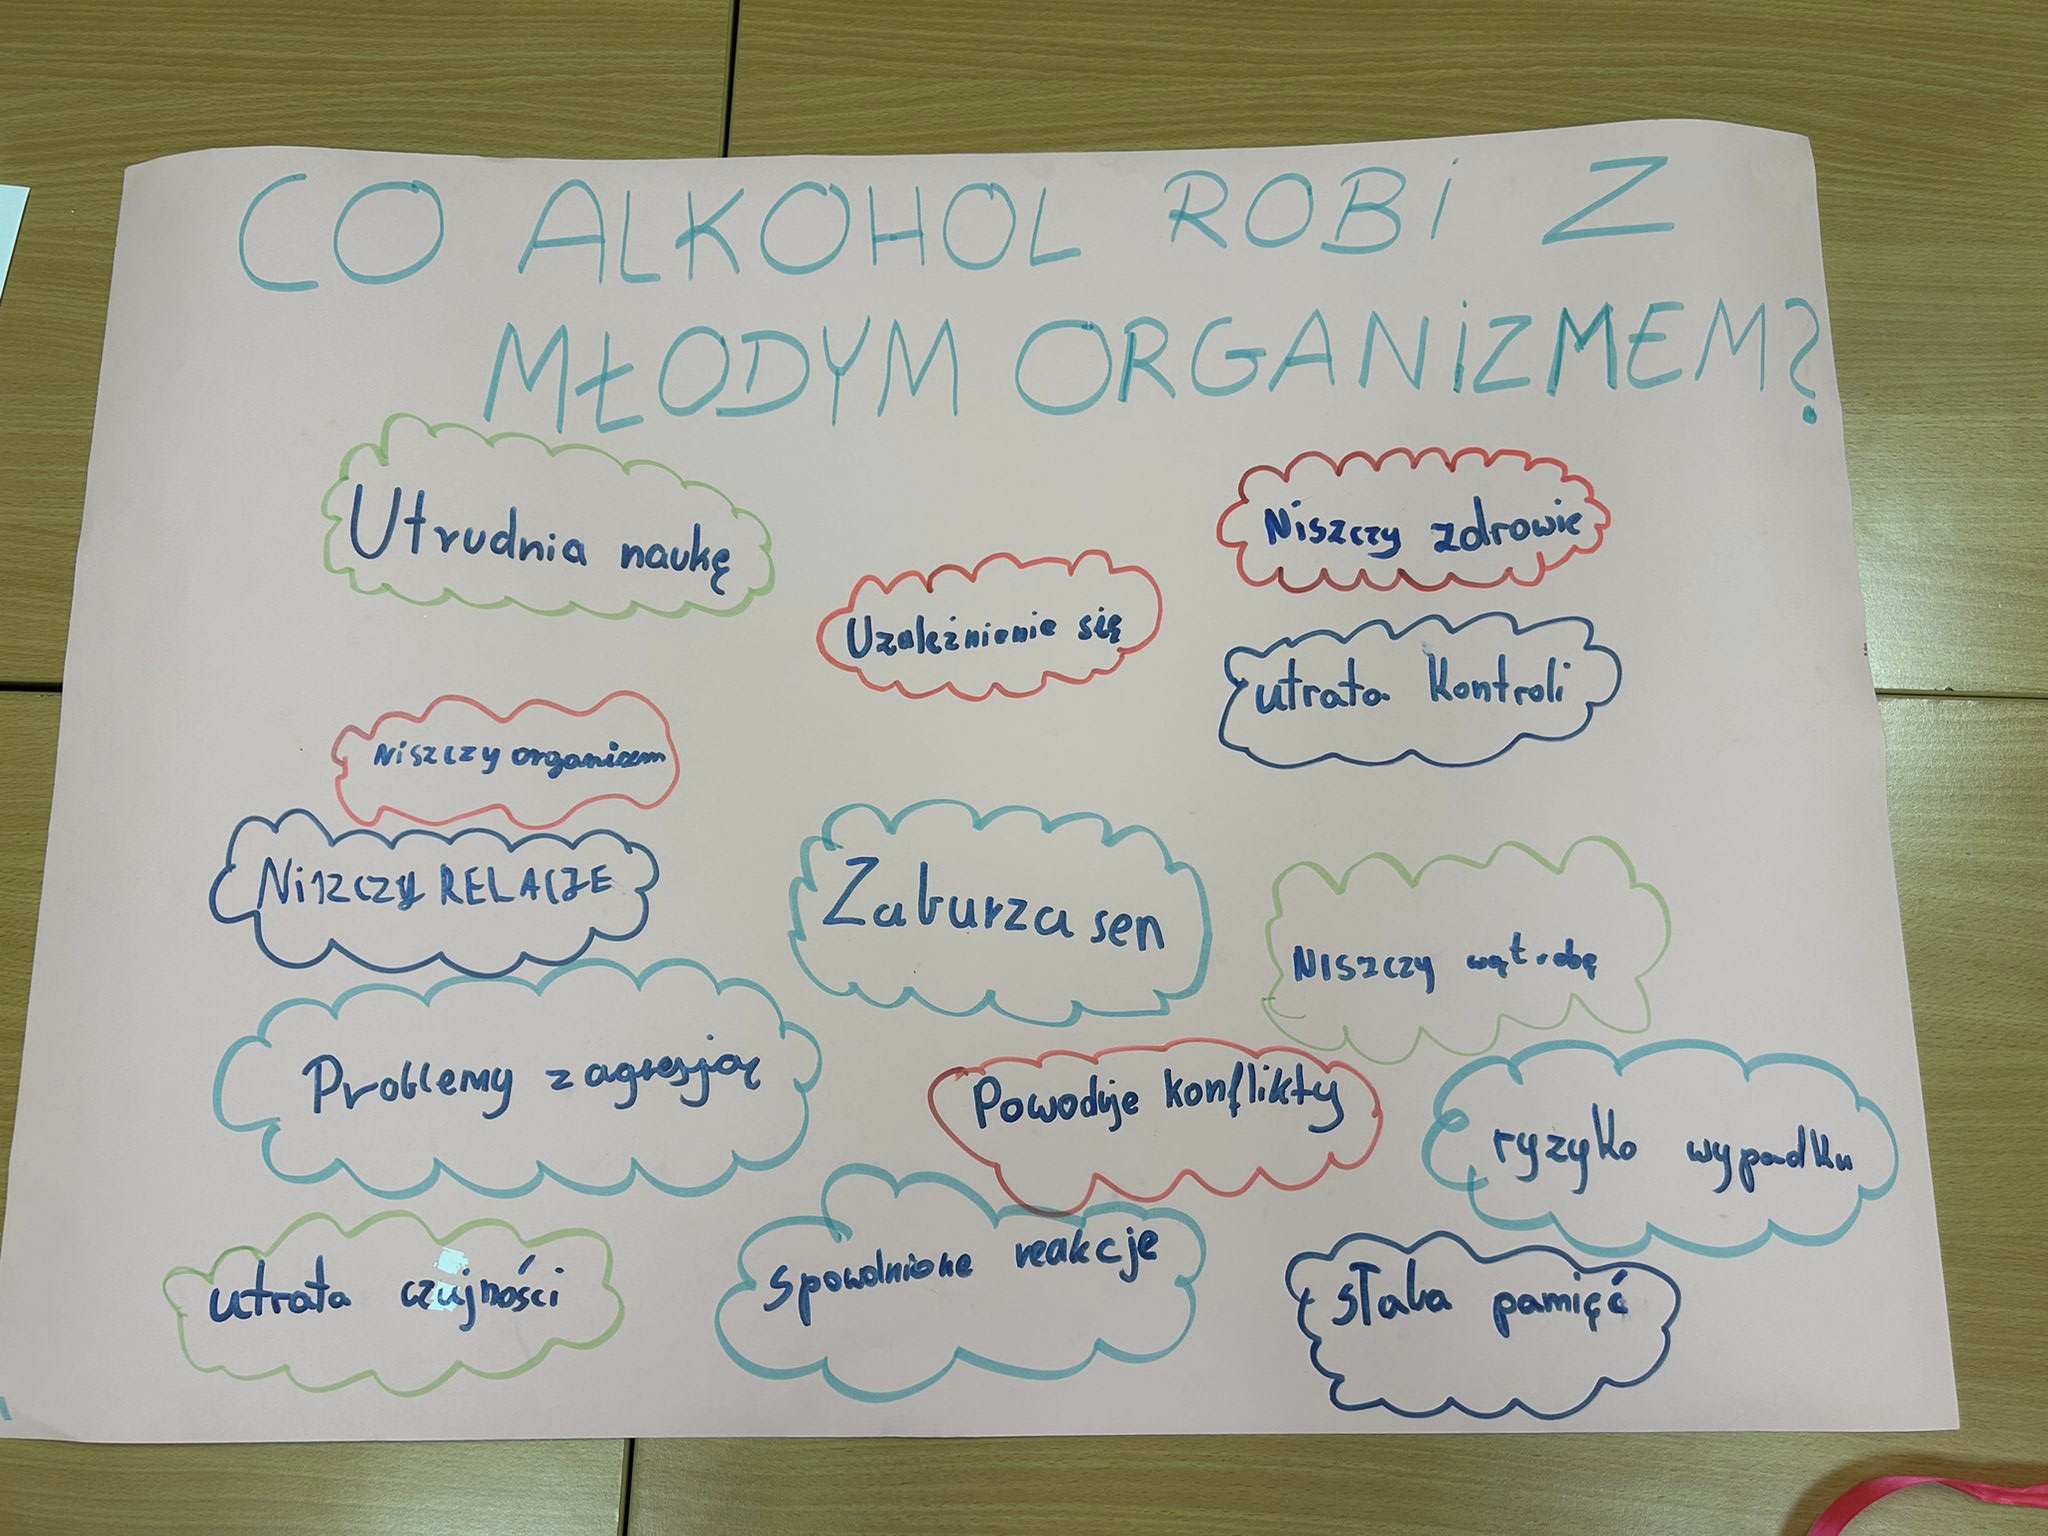 CO ALKOHOL ROBi Z
MŁODYM ORGANiZMEM?
Utrudnia naukę
Niszczy zdrowie
Uzależnienie się
utrata kontroli
Niszczy organizm
NiSZCZY RELACJE
Zaburza sen
NISZCZY wątrobę
Problemy z agresją
Powoduje konflikty
ryzyko wypadku
utrata czujności
spowolnione reakcje
słaba pamięć